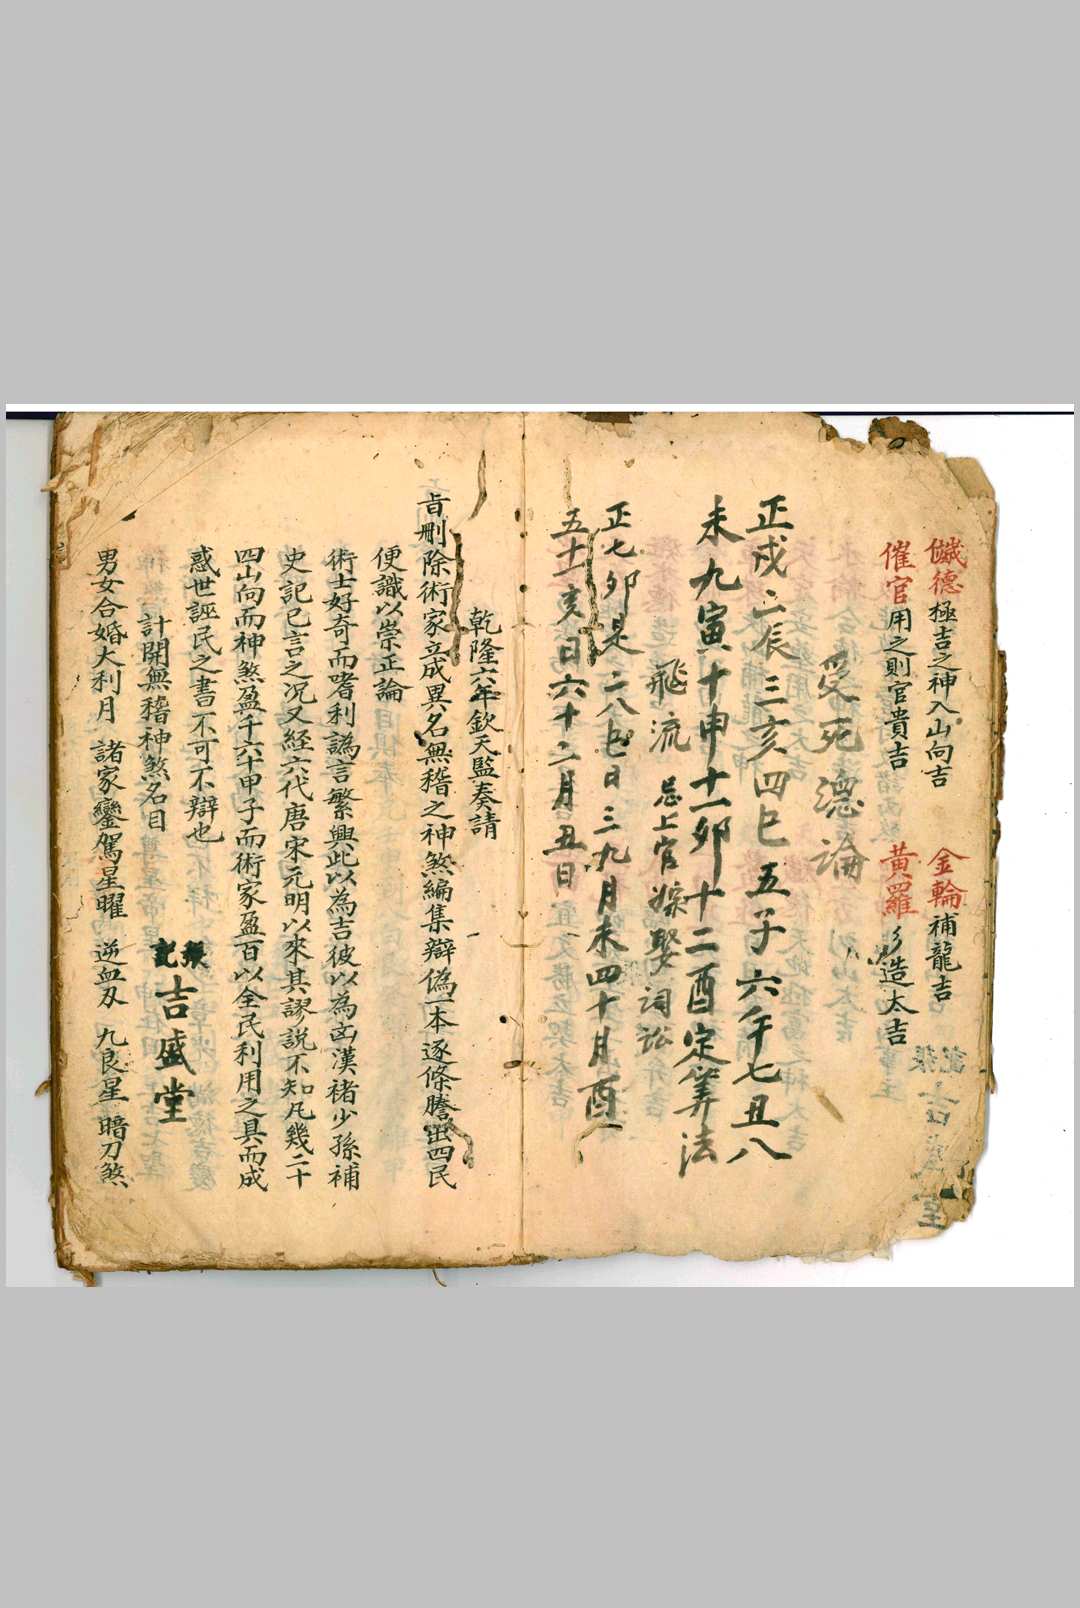 德極吉之神入山向吉　金輪補龍吉
催官用之則官貴吉　黃羅造大吉
受死德論
正戌二辰三亥四巳五子六午七丑八
未九寅十申十一卯十二酉定筭法
飛流　忌上官嫁娶詞訟
正七卯是二八七日三九月未四十月酉
五十一亥日六十二月丑日
乾隆六年欽天監奏請
旨刪除術家立成異名無稽之神煞編集辯偽一本逐條謄出四民
便識以崇正論
術士好奇而嗜利譌言繁興此以為吉彼以為凶漢褚少孫補
史記已言之况又経六代唐宋元明以來其謬說不知凡幾二十
四山向而神煞盈千六十甲子而術家盈百以全民利用之具而成
惑世誣民之書不可不辯也
計開無稽神煞名目
張記吉盛堂
男女合婚大利月　諸家鑾駕星曜　逆血刃　九良星　暗刀煞